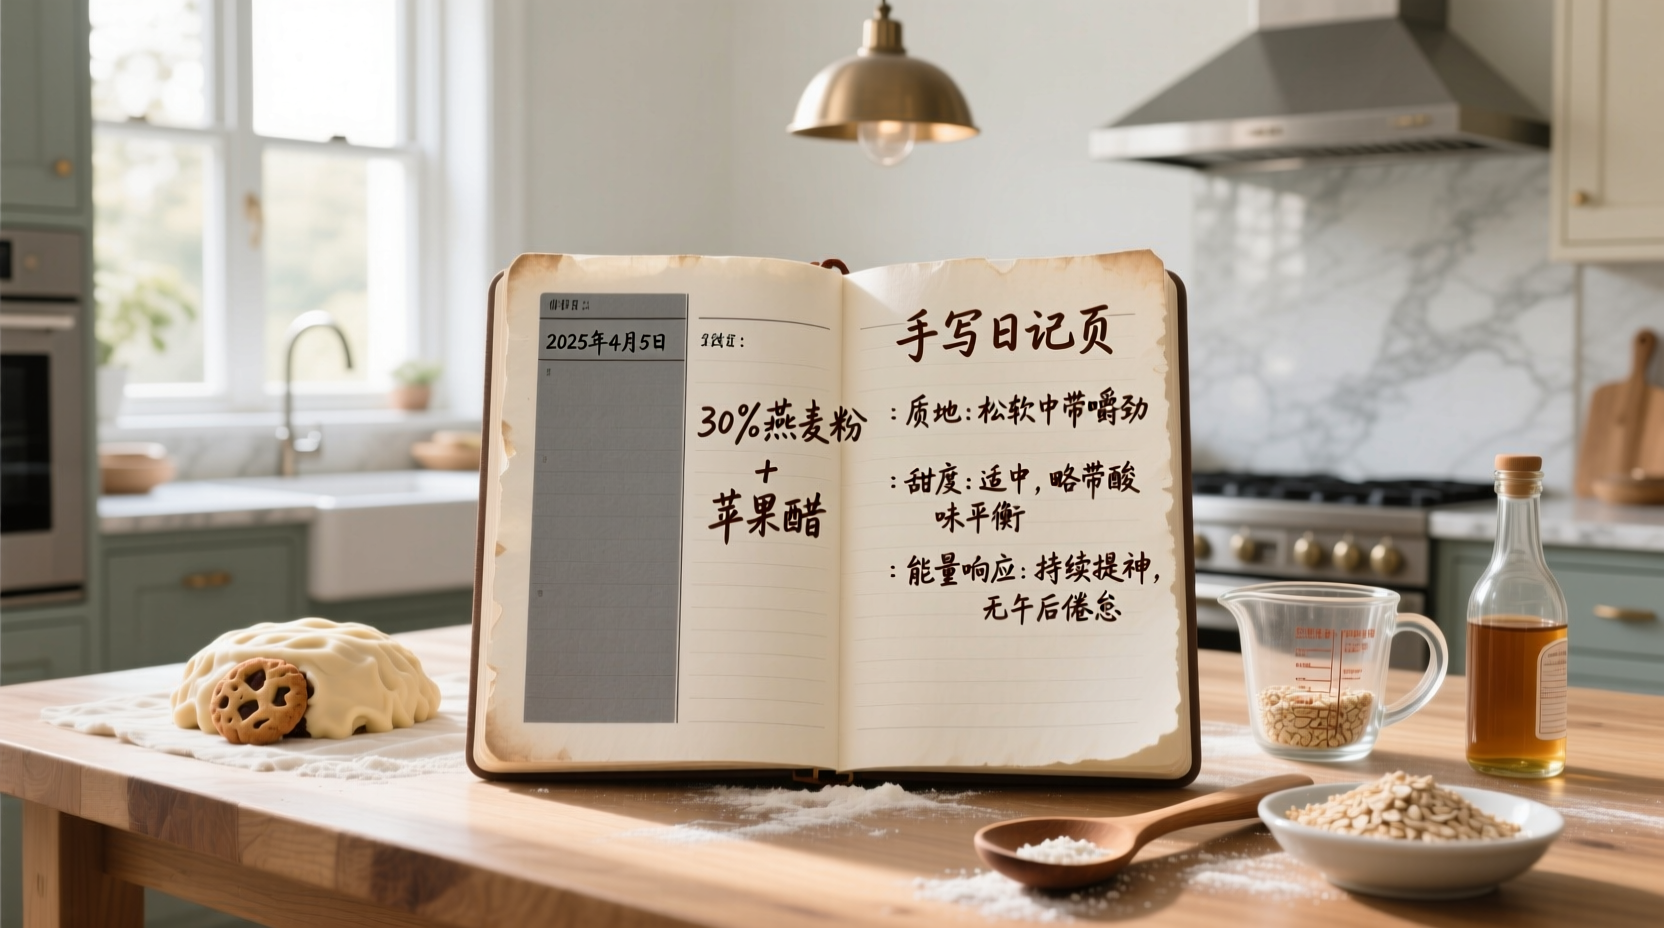 2025年4月5日
30%燕麦粉
+
苹果醋
手写日记页
: 质地: 松软中带嚼劲
: 甜度: 适中, 略带酸
味平衡
: 能量响应: 持续提神,
无午后倦怠